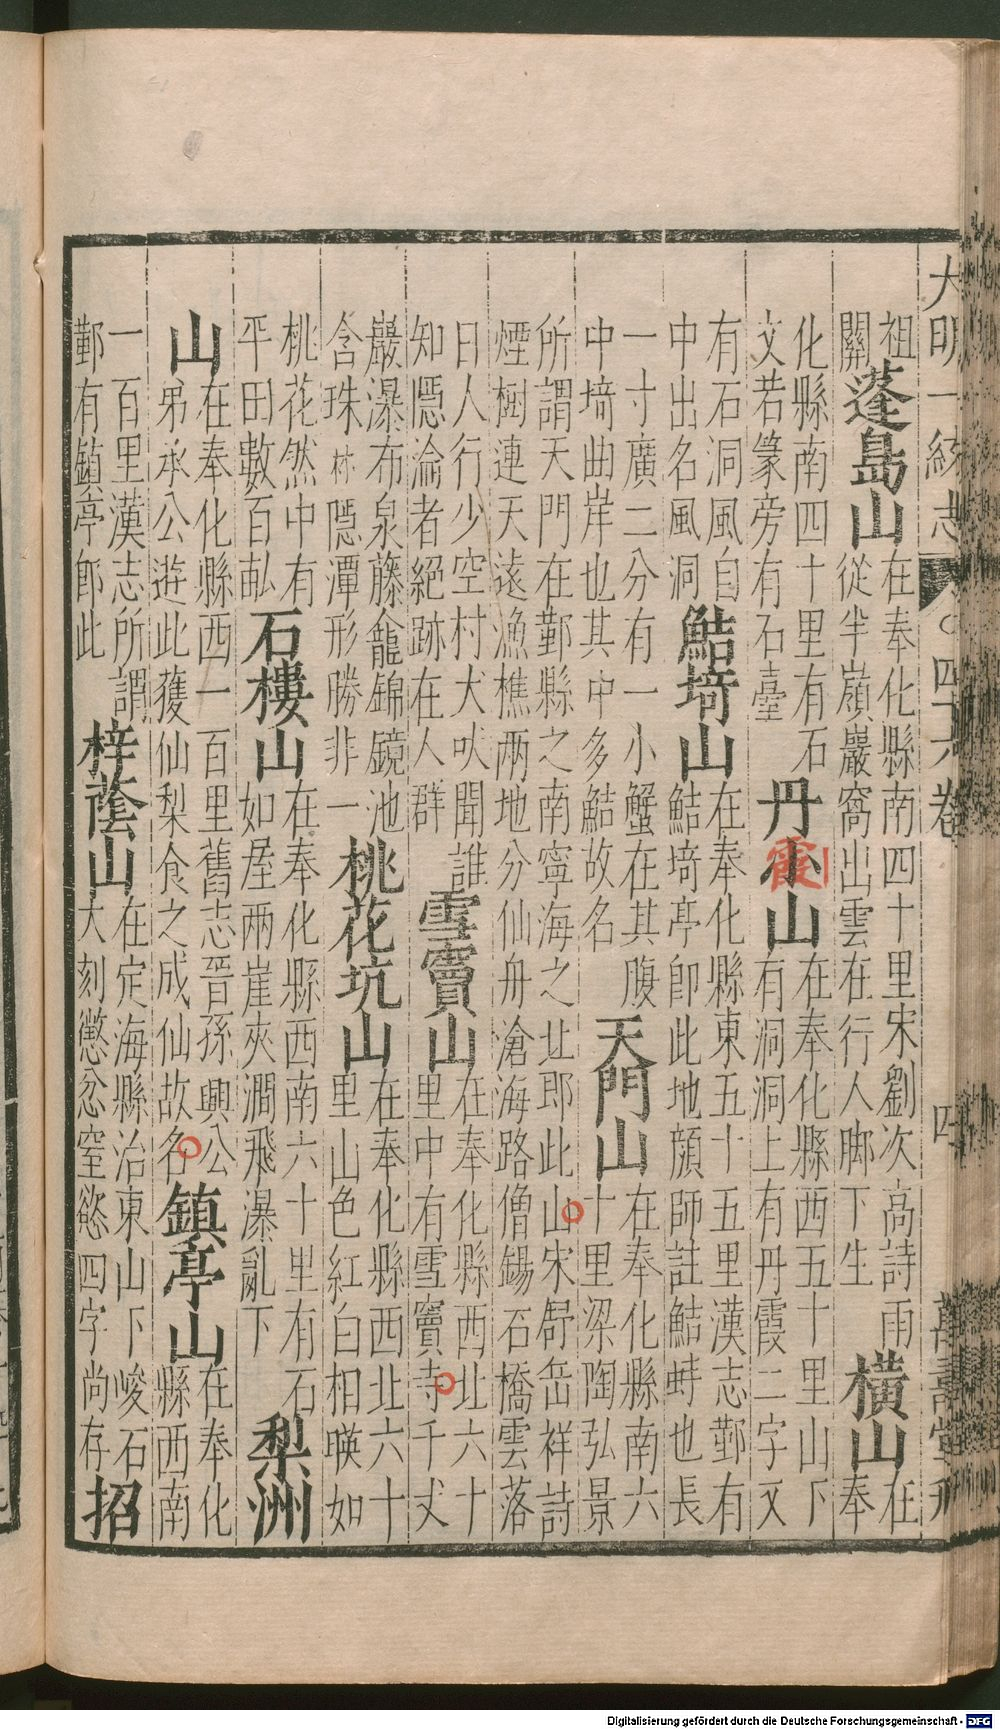 大明一統志
四
祖
關
蓬島山
在奉化縣南四十里宋劉次高詩雨
從半嶺巖窩出雲在行人腳下生
橫山
在
奉
化縣南四十里有石
文若篆旁有石臺
丹小山
霞
在奉化縣西五十里山下
有洞洞上有丹霞二字又
有石洞風自
中出名風洞
鮚埼山
在奉化縣東五十五里漢志鄞有
鮚埼亭卽此地顔師註鮚蚌也長
一寸廣二分有一小蟹在其腹
中埼曲岸也其中多鮚故名
天門山
在奉化縣南六
十里梁陶弘景
所謂天門在鄞縣之南寧海之北郎此山宋舒岳祥詩
煙樹連天遠漁樵兩地分仙舟滄海路僧錫石橋雲落
日人行少空村犬吠聞誰
知隱淪者絕跡在人群
雪竇山
在奉化縣西北六十
里中有雪竇寺千丈
巖瀑布泉藤龕錦鏡池
含珠林隱潭形勝非一
桃花坑山
在奉化縣西北六十
里山色紅白相暎如
桃花然中有
平田數百畝
石樓山
在奉化縣西南六十里有石
如屋兩崖夾澗飛瀑亂下
梨洲
山
在奉化縣西一百里舊志晉孫興公
弟承公遊此獲仙梨食之成仙故名
鎮亭山
在奉化
縣西南
一百里漢志所謂
鄞有鎮亭郎此
梓蔭山
在定海縣治東山下峻石
大刻懲忿窒慾四字尚存
招
Digitalisierung gefördert durch die Deutsche Forschungsgemeinschaft - DFG